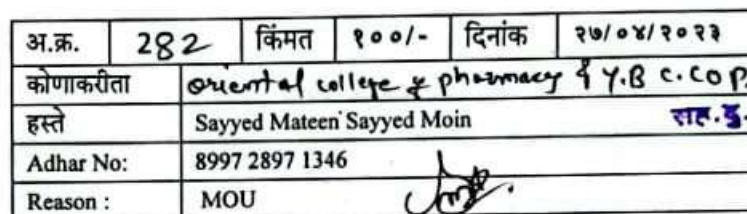 अ.क्र. 282 किंमत १००/- दिनांक २७/०४/२०२३
कोणाकरीता oriental college of pharmacy & Y.B C. COP.
हस्ते Sayyed Mateen Sayyed Moin सह.दु.
Adhar No: 8997 2897 1346
Reason : MOU